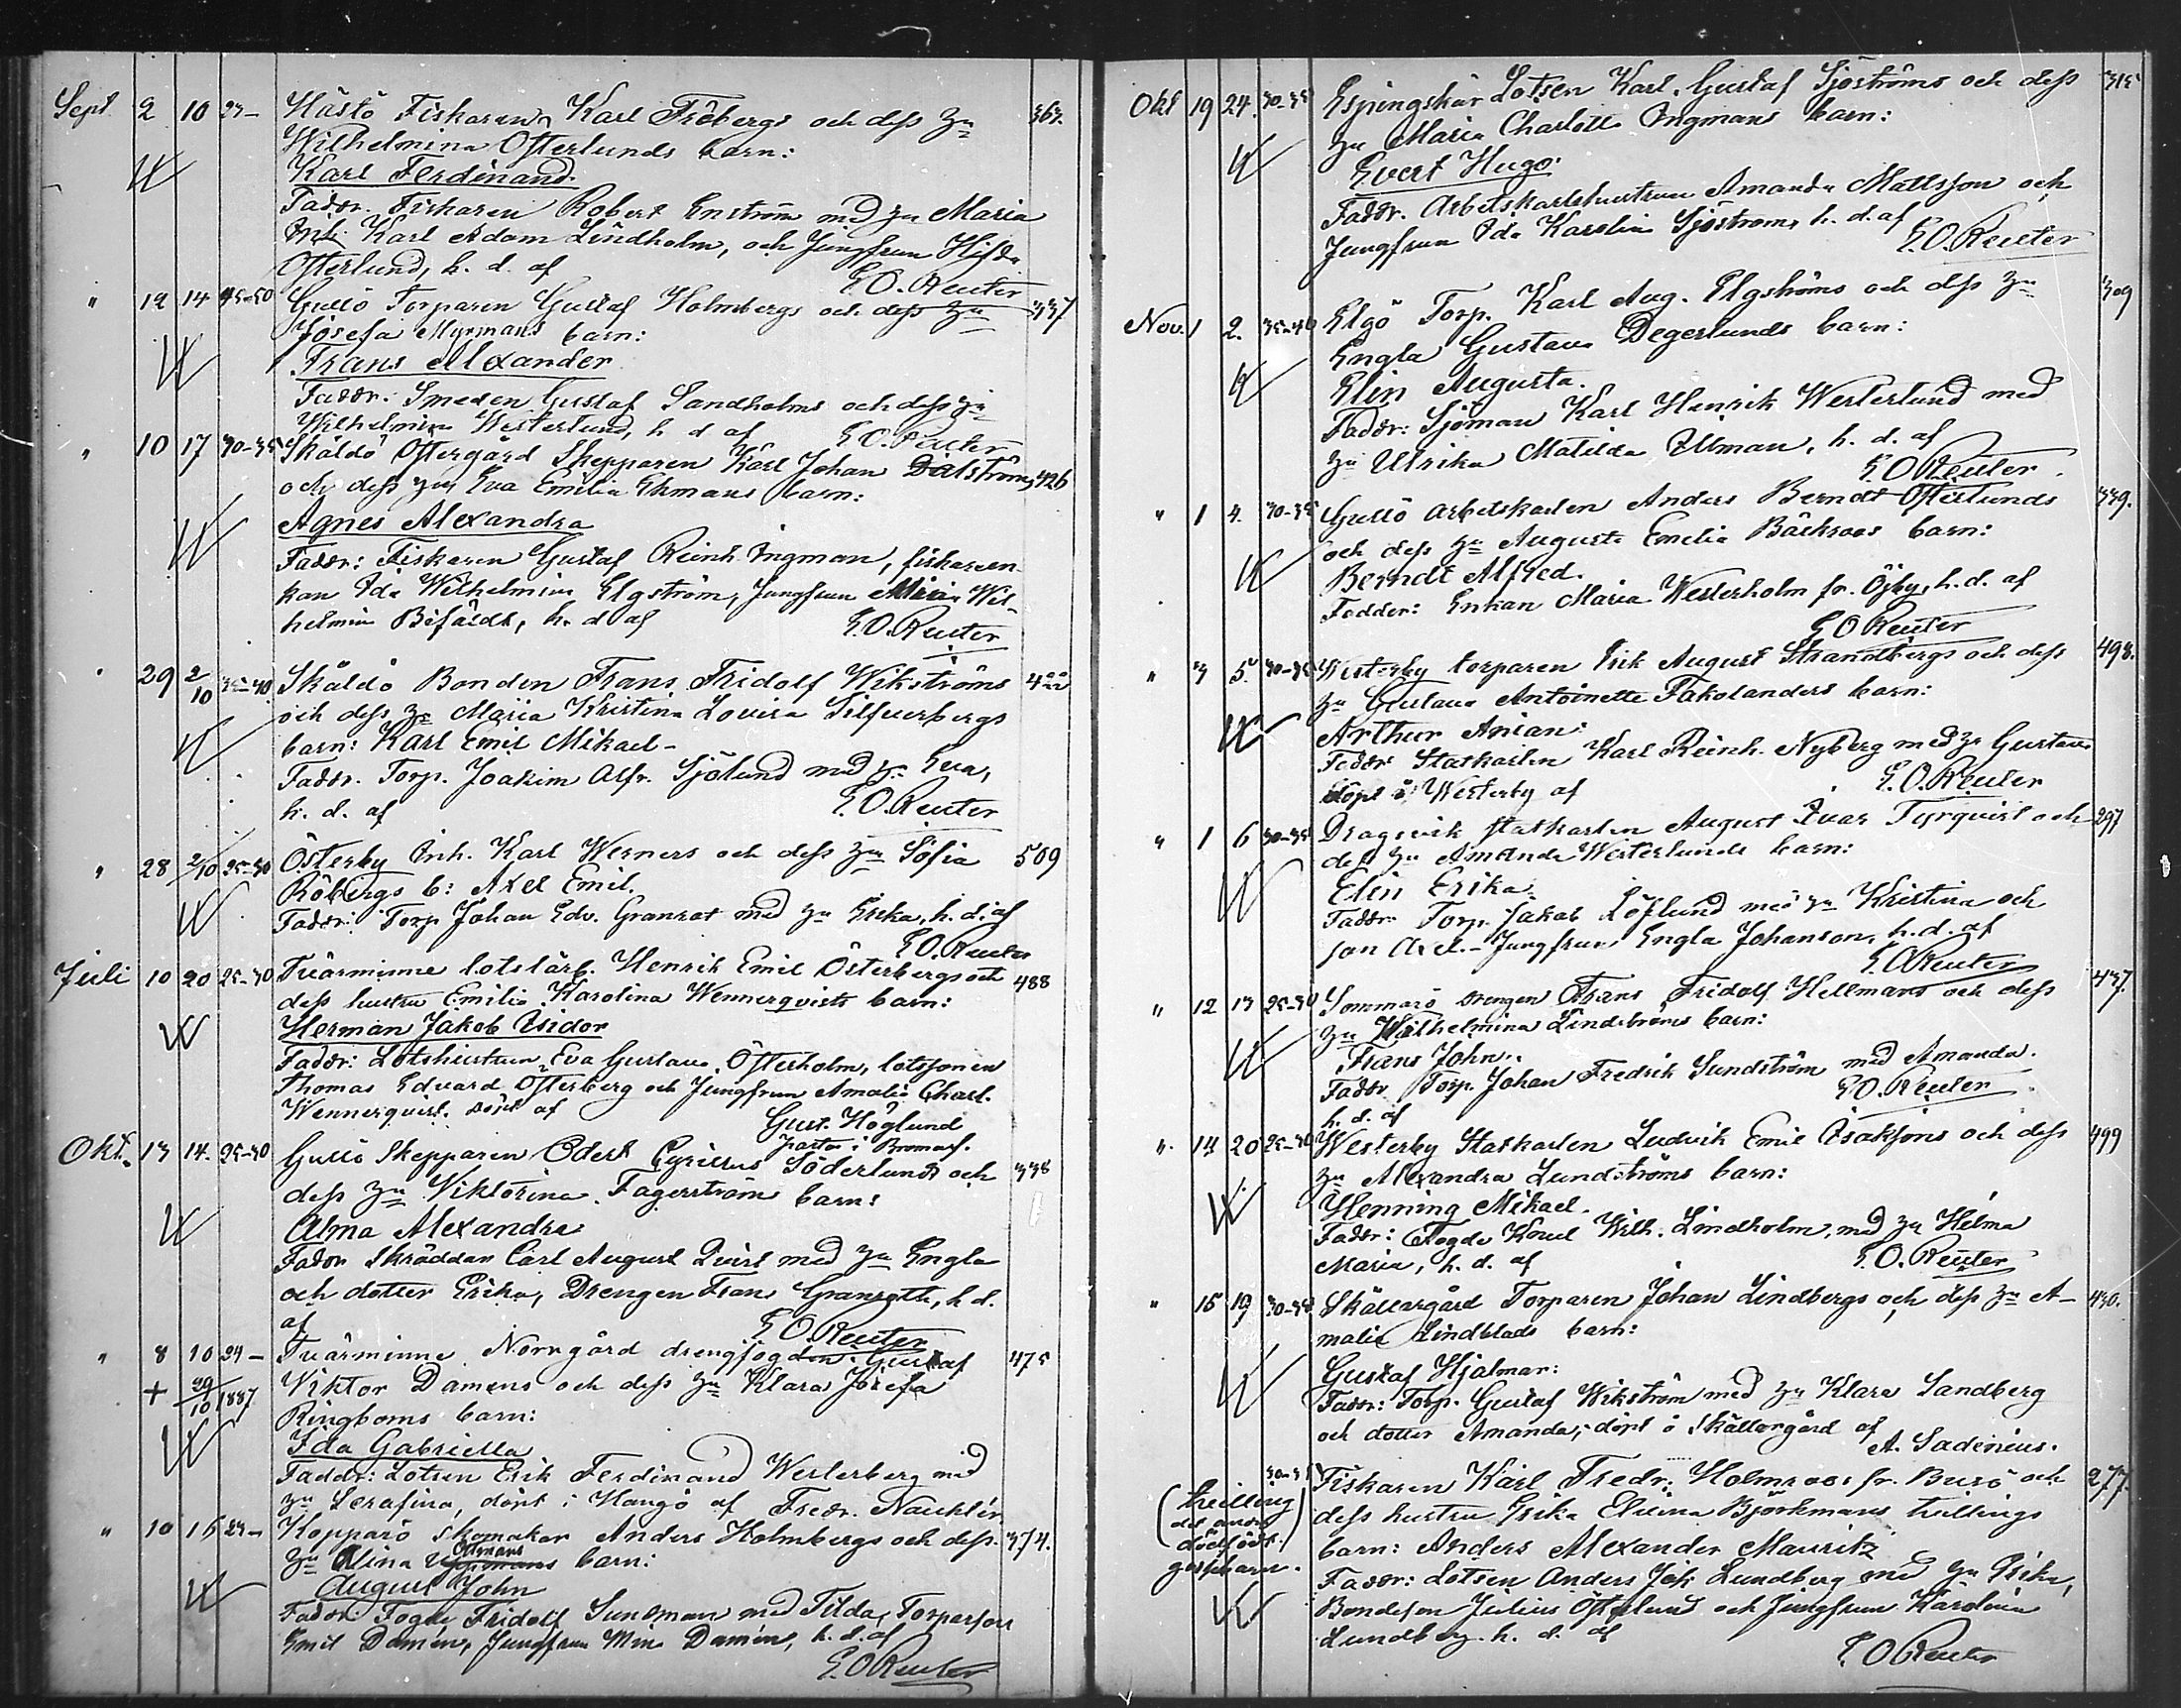 Sept 2 10 23- Hästö Fiskaren Karl Fröbergs och dess hu 363.
Wilhelmina Österlunds barn:
Karl Ferdinand.
Faddr. Fiskaren Robert Enström med hu Maria
Inh. Karl Adam Lindholm, och Jungfrun Hilda
Österlund, h. d. af E.O. Reuter
" 12 14 45-50 Gullö Torparen Gustaf Holmbergs och dess hu 337
Josefa Myrmans barn:
Frans Alexander
Faddr: Smeden Gustaf Sandholms och dess hu
Wilhelmina Westerlund, h d af E.O. Reuter
" 10 17 30-35 Skåldö Östergård Skepparen Karl Johan Dalström 426
och dess hu Eva Emilia Ekmans barn:
Agnes Alexandra
Faddr: Fiskaren Gustaf Reinh. Ingman, fiskareen-
kan Ida Wilhelmina Elgström, Jungfrun Maria Wil-
helmin h. d af E.O. Reuter
" 29 2/10 35-40 Skåldö Bonden Frans Fridolf Wikströms 422
och dess hu Maria Kristina Lovisa Silfverbergs
barn: Karl Emil Mikael-
Faddr. Torp. Joakim Alfr. Sjölund med hu Eva,
h. d. af E.O. Reuter
" 28 2/10 25-30 Österby Inh. Karl Werners och dess hu Sofia 509
Röbergs b: Axel Emil.
Faddr: Torp Johan Edv. Granrot med hu Erika, h. d. af
E.O. Reuter
Juli 10 20 25-30 Tvärminne lotslärl. Henrik Emil Österbergs och 488
dess hustru Emilia Karolina Wennerqvists barn:
Herman Jakob Isidor
Faddr: Lotshustrun Eva Gustava Österholm, lotssonen
Thomas Edvard Österberg och Jungfrun Amalia Charl.
Wennerqvist. döpt af Gust. Höglund
pastor i Bromarf.
Okt. 13 14. 25-30 Gullö Skepparen Edert Cyrillus Söderlunds och 338
dess hu Viktorina Fagerström barn:
Alma Alexandra
Faddr Skräddar Carl August Qvist med hu Engla
och dotter Erika, Drengen Frans Granroth, h d.
af E.O. Reuter
" 8 10 24- Tvärminne Norrgård drengfogden Gustaf 475
+ 29/10 1887 Viktor Damens och dess hu Klara Josefa
Ringboms barn:
Ida Gabriella
Faddr: Lotsen Erik Ferdinand Westerberg med
hu Serafina, döpt i Hangö af Fredr. Nauklér
" 10 16 23- Kopparö Skomakar Anders Holmbergs och dess 374.
hu Olina Östmans barn:
August John
Faddr: Fogde Fridolf Sundman med Tilda, Torparson
Emil Damén, Jungfrun Mina Damén, h. d. af
E.O. Reuter
Okt 19 24. 30-35 Espingskär Lotsen Karl Gustaf Sjöströms och dess 315
hu Maria Charlotta Ingmans barn:
Evert Hugo.
Faddr. Arbetskarlshustrun Amanda Mattsson och
Jungfrun Ida Karolina Sjöström, h. d. af
E.O. Reuter
Nov. 1 2. 35-40 Elgö Torp. Karl Aug. Elgströms och dess hu 309
Engla Gustava Degerlunds barn:
Elin Augusta.
Faddr: Sjöman Karl Henrik Westerlund med
hu Ulrika Matilda Ullman, h. d. af
E.O. Reuter.
" 1 4. 30-35 Gullö arbetskarlen Anders Berndt Österlunds 339.
och dess hu Augusta Emilia Bäckroos barn:
Berndt Alfred.
Fadder: Enkan Maria Westerholm fr. Öjby, h. d. af
E O Reuter
" 3 5. 30-35 Westerby torparen Erik August Strandbergs och dess 498.
hu Gustava Antoinetta Fakolanders barn:
Arthur Anian:
Faddr Statkarlen Karl Reinh. Nyberg med hu Gustava
döpt å Westerby af E.O. Reuter
" 1 6 30-35 Dragsvik Statkarlen August Ivar Tyrqvist och 297
dess hu Amanda Westerlunds barn:
Elin Erika
Faddr. Torp. Jakob Löflund med hu Kristina och
son Axel.- Jungfrun Engla Johanson, h. d. af
E.O. Reuter
" 12 13 25-30 Sommarö drengen Frans Fridolf Hellmans och dess 437.
hu Wilhelmina Lindströms barn:
Frans John.
Faddr Torp. Johan Fredrik Sundström med Amanda.
h. d. af E.O. Reuter
" 14 20 25-30 Westerby Statkarlen Ludvik Emil Isakssons och dess 499
hu Alexandra Lundströms barn:
Henning Mikael.
Faddr: Fogde Knut Wilh. Lindholm, med hu Helma
Maria, h. d. af E.O. Reuter
" 15 19 30-35 Skällargård Torparen Johan Lindbergs och dess hu A- 430.
malia Lindblads barn:
Gustaf Hjalmar:
Faddr: Torp. Gustaf Wikström med hu Klara Sandberg
och dotter Amanda, döpt å Skällargård af
A. Sadenius.
30-35 Fiskaren Karl Fredr. Holmroos fr. Busö och 277.
(tvilling dess hustru Erika Elvina Björkmans tvillings
det andra
dödfödt.) barn: Anders Alexander Mauritz
gossbarn. Faddr: Lotsen Anders Jak Lundberg med hu Erika,
Bondeson Julius Österlund och Jungfrun Karolina
Lundberg. h. d. af
E.O. Reuter